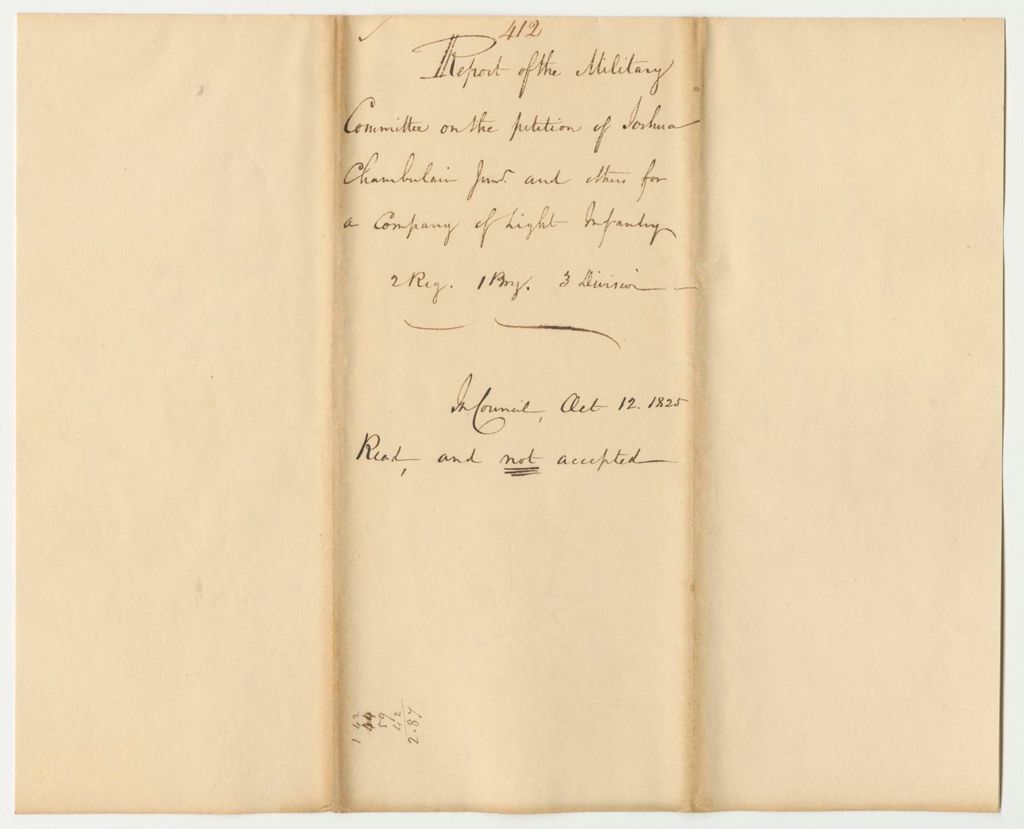 412
Report of the Military
Committee on the petition of Joshua
Chamberlain Junr. and others for
a Company of Light Infantry
2 Reg. 1 Brig. 3 Division
In Council, Oct 12. 1825
Read, and not accepted
1 42
44
59
42
2.87